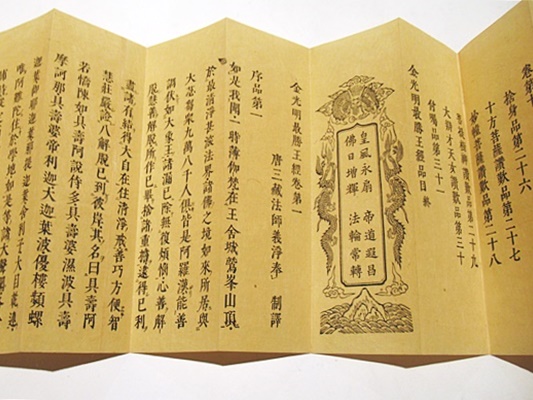 卷第十
捨身品第二十六
十方菩薩讚歎品第二十七
妙幢菩薩讚歎品第二十八
菩提樹神讚歎品第二十九
大辯才天女讚歎品第三十
付囑品第三十一
金光明最勝王經品目終
皇風永扇 帝道遐昌
佛日增輝 法輪常轉
金光明最勝王經卷第一
唐三藏法師義淨奉 制譯
序品第一
如是我聞一時薄伽梵在王舍城鷲峯山頂
於最清淨甚深法界諸佛之境如來所居與
大苾芻眾九萬八千人俱皆是阿羅漢能善
調伏如大象王諸漏已除無復煩惱心善解
脫慧善解脫所作已畢捨諸重擔逮得己利
盡諸有結得大自在住清淨戒善巧方便智
慧莊嚴證八解脫已到彼岸其名曰具壽阿
若憍陳如具壽阿說侍多具壽婆濕波具壽
摩訶那具壽婆帝利迦大迦葉波優樓頻螺
迦葉伽耶迦葉那提迦葉舍利子大目乾連
唯阿難陀住於學地如是等諸大聲聞各